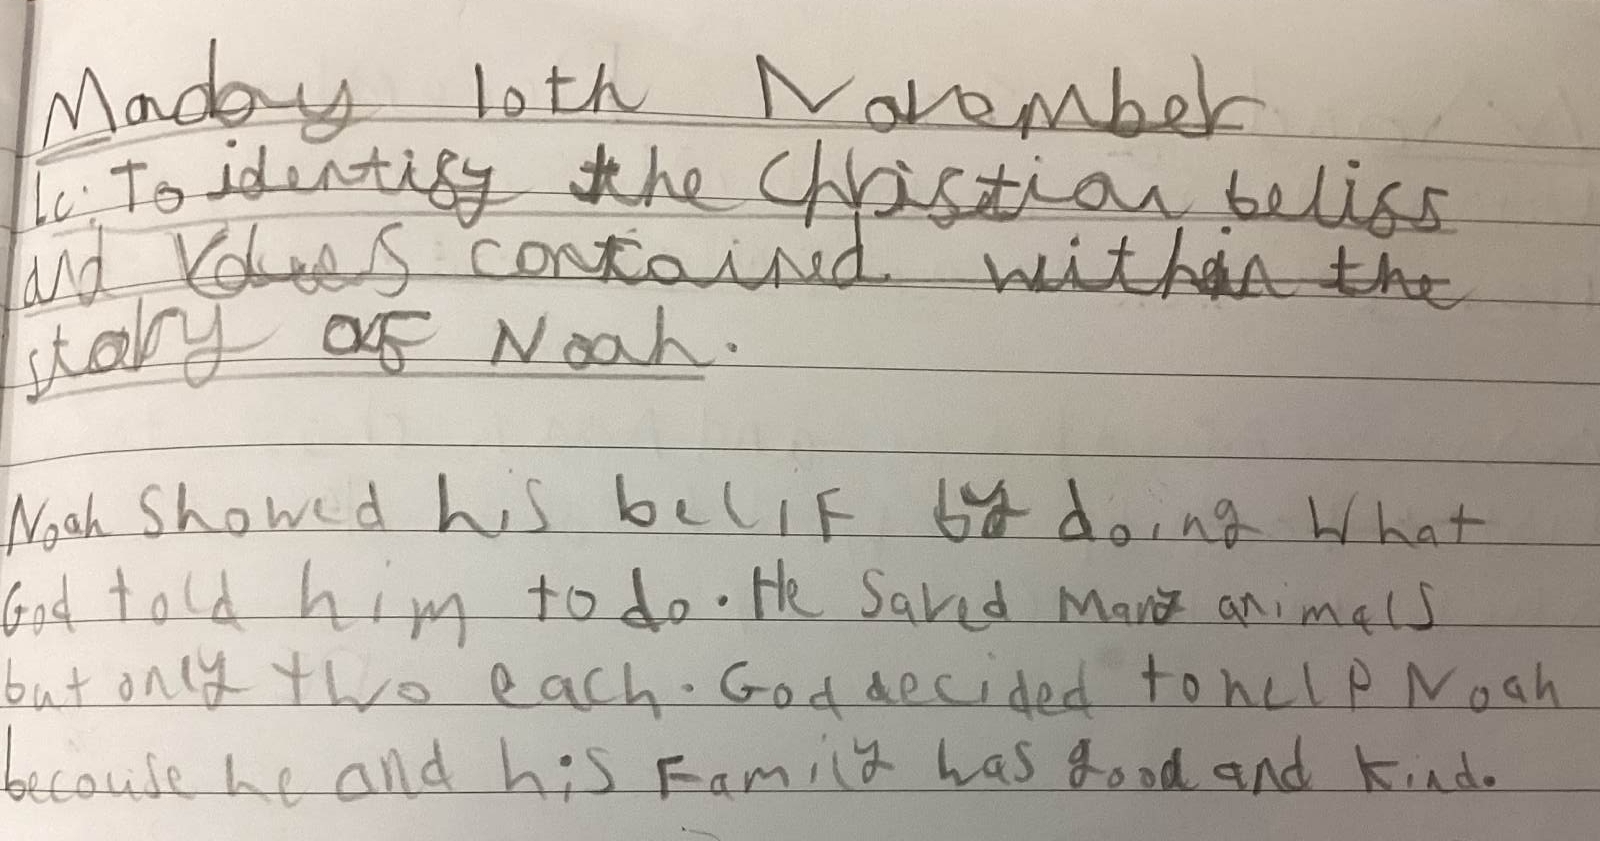 Monday 10th November
Lc: To identify the Christian beliss
and Values contained within the
story of Noah.
Noah Showed his belif by doing what
God told him to do. He Saved many animals
but only two each. God decided to help Noah
becouse he and his Family was good and kind.